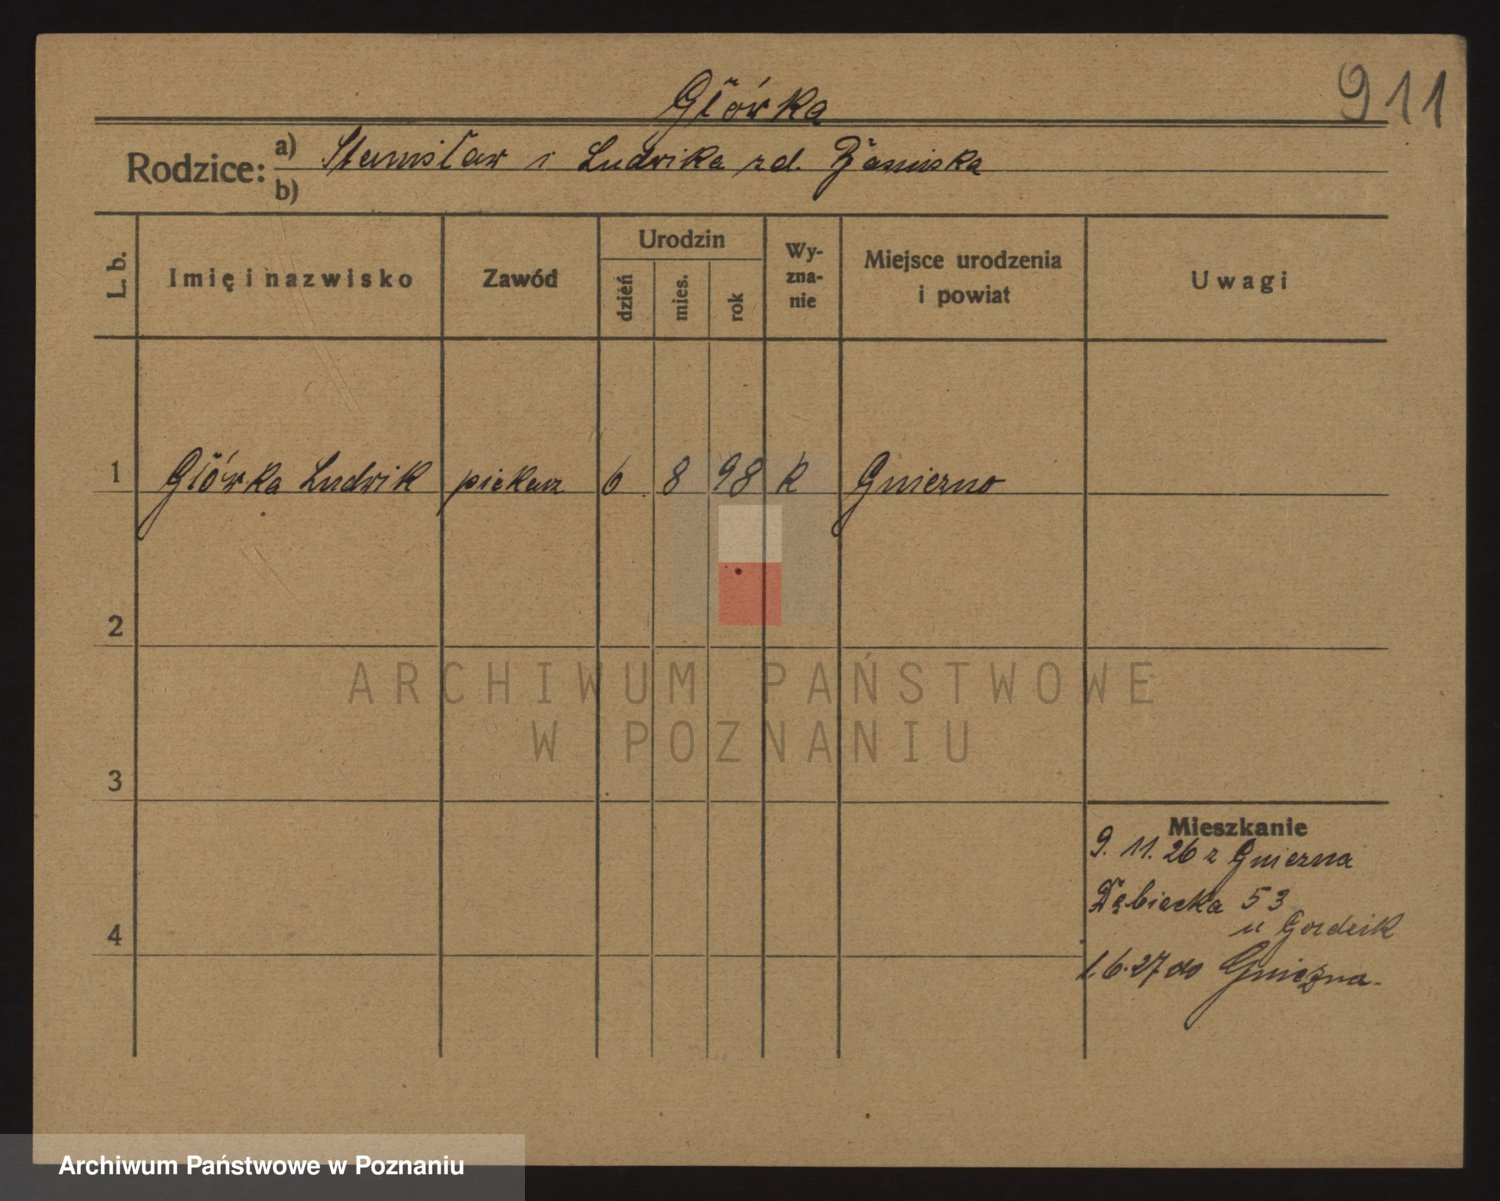 911
Główka
Rodzice: a) Stanisław i Ludwika zd.
b)
L. b.
Imię i nazwisko
Zawód
Urodzin
dzień
mies.
rok
Wy-
zna-
nie
Miejsce urodzenia
i powiat
Uwagi
1 Główka Ludwik piekarz 6 8 98 k Gniezno
2
ARCHIWUM PAŃSTWOWE
W POZNANIU
3
Mieszkanie
9. 11. 26 z Gniezna
53
4
u Gozdzik
1.6.27 do Gniezna.
Archiwum Państwowe w Poznaniu